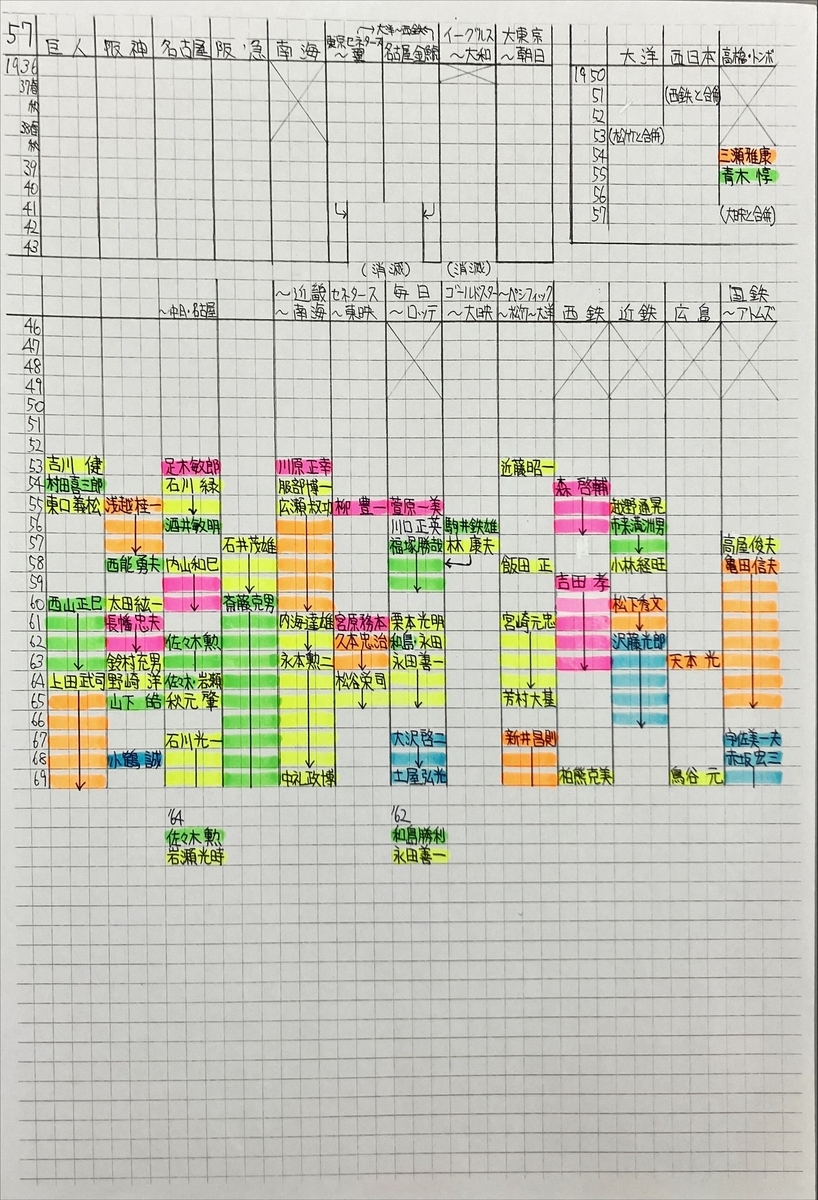 57
巨人 阪神 名古屋 阪急 南海 東京セネタース ～翼 大洋～西鉄 名古屋金鯱 イーグルス ～大和 大東京 ～朝日
大洋 西日本 高橋・トンボ
1936
37春
秋
38春
秋
39
40
41
42
43
1950
51 (西鉄と合併)
52
53 (松竹と合併)
54 三瀬雅康
55 青木惇
56
57 (大映と合併)
(消滅) (消滅)
～中日・名古屋 ～近畿 ～南海 セネタース ～東映 毎日 ～ロッテ ゴールドスター ～大映 ～パシフィック ～松竹～大洋 西鉄 近鉄 広島 国鉄 ～アトムズ
46
47
48
49
50
51
52
53 吉川健 足木敏郎 川原正幸 近藤昭一
54 村田喜三郎 石川緑 服部博一 森啓輔
55 東口義松 浅越桂一 広瀬叔功 柳豊一 菅原一美 越野通晃
56 酒井敏明 川口正英 駒井鉄雄 市来満洲男
57 石井茂雄 福塚勝哉 林康夫 高屋俊夫
58 西能勇夫 内山和巳 飯田正 小林経旺 亀田信夫
59 吉田孝
60 西山正巳 太田紘一 斎藤克男 松下秀文
61 長幡忠夫 内海達雄 宮原務本 栗本光明 宮崎元忠
62 佐々木勲 久本忠治 和島・永田 沢藤光郎
63 鈴村充男 永本勲二 永田善一 天本光
64 上田武司 野崎洋 佐々木・岩瀬 松谷栄司
65 山下皓 秋元肇 芳村大基
66
67 石川光一 大沢啓二 新井昌則 宇佐美一夫
68 小鶴誠 赤坂宏三
69 中礼政博 土屋弘光 柏熊克美 鳥谷元
'64 '62
佐々木勲 和島勝利
岩瀬光時 永田善一